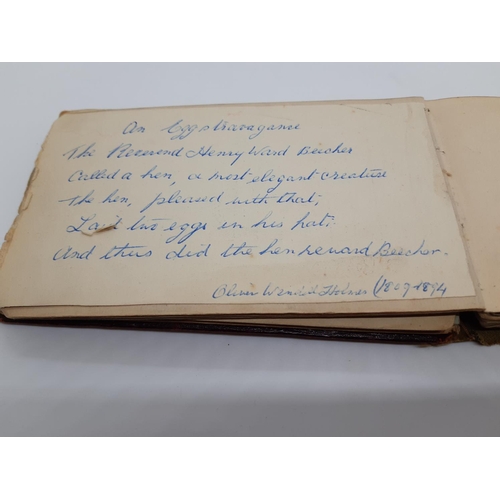 An Eggstravagance
The Reverend Henry Ward Beecher
Called a hen, a most elegant creature
The hen, pleased with that,
Laid two eggs in his hat:
And thus did the hen reward Beecher.
Oliver Wendell Holmes (1809-1894